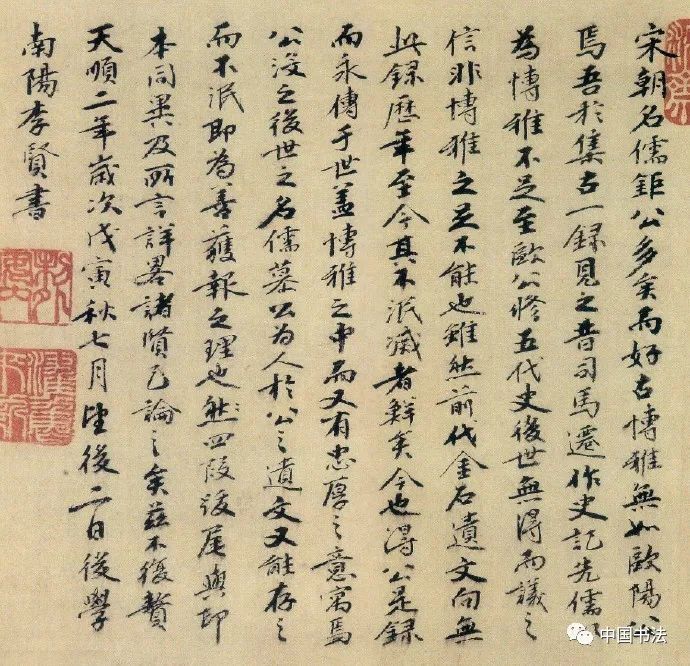 宋朝名儒鉅公多矣而好古博雅無如歐陽公
焉吾於集古一録見之昔司馬遷作史記先儒以
為博雅不足至歐公修五代史後世無得而議之
信非博雅之足不能也雖然前代金石遺文向無
此録歷年至今其不泯滅者鮮矣今也得公是録
而永傳于世盖博雅之中而又有忠厚之意寓焉
公没之後世之名儒慕公為人於公之遺文又能存之
而不泯即為善獲報之理也然四段跋尾與印
本同異及所言詳畧諸賢已論之矣茲不復贅
天順二年歲次戊寅秋七月望後二日後學
南陽李賢書
中国书法